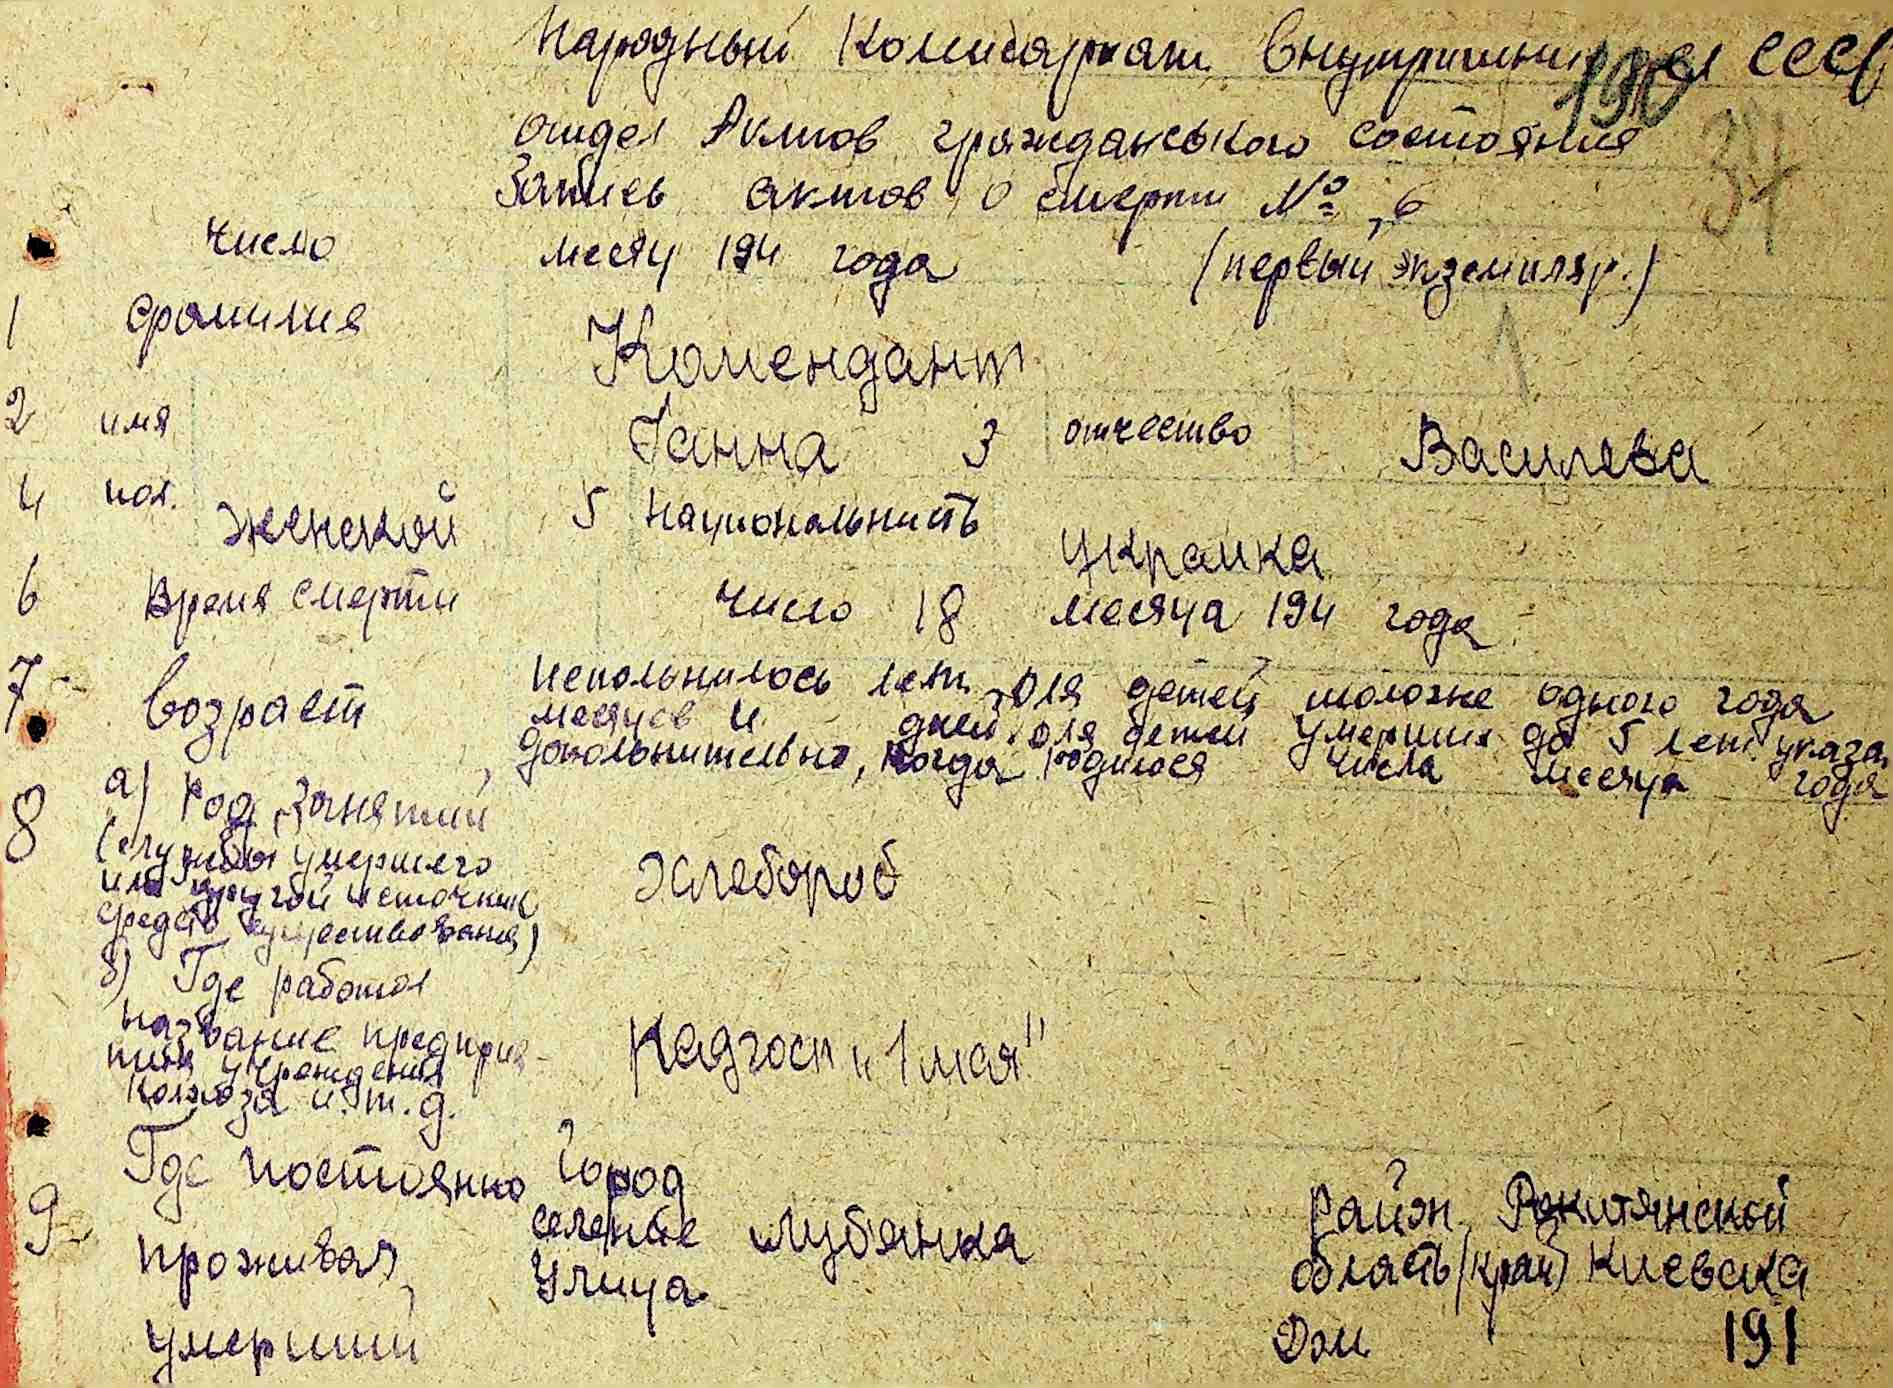 Народный Комисариат Внутришни дел СССР
190
отдел Актов гражданського состояния
34
Запись актов о смерти № 6
число месяц 194 года (первый экземпляр.)
1 фамилия Комендант
1
2 имя Ганна 3 отчество Василева
4 пол. Женской 5 национальность украинка
6 Время смерти число 18 месяца 194 года
7 возраст Исполнилось лет. для детей моложе одного года
месяцев и дней для детей умерших до 5 лет указ.
допольнительно, когда родился числа месяца года
8 а) Род занятий
(службы умершего
или другой источник
средств существования) Хлебороб
б) Где работал
название предприя-
тия учреждения
колхоза и.т.д. Радгосп "1 мая"
9 Где постоянно Город
проживал селение Лубянка район Рокитянской
Улица область (край) Киевска
умерший Дом 191